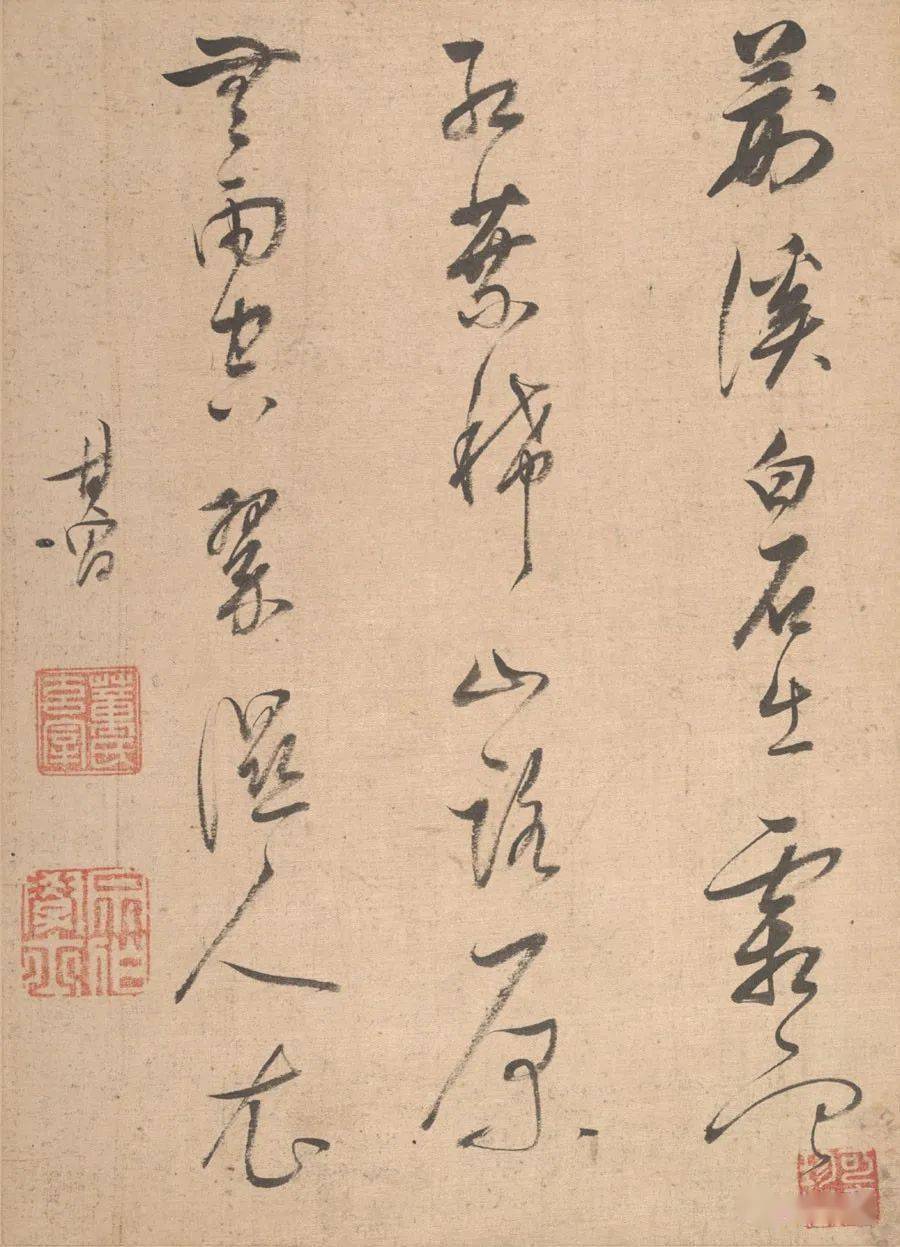 荊溪白石出霜
紅葉稀山路原
無雨空翠濕人衣
其昌
董氏玄宰